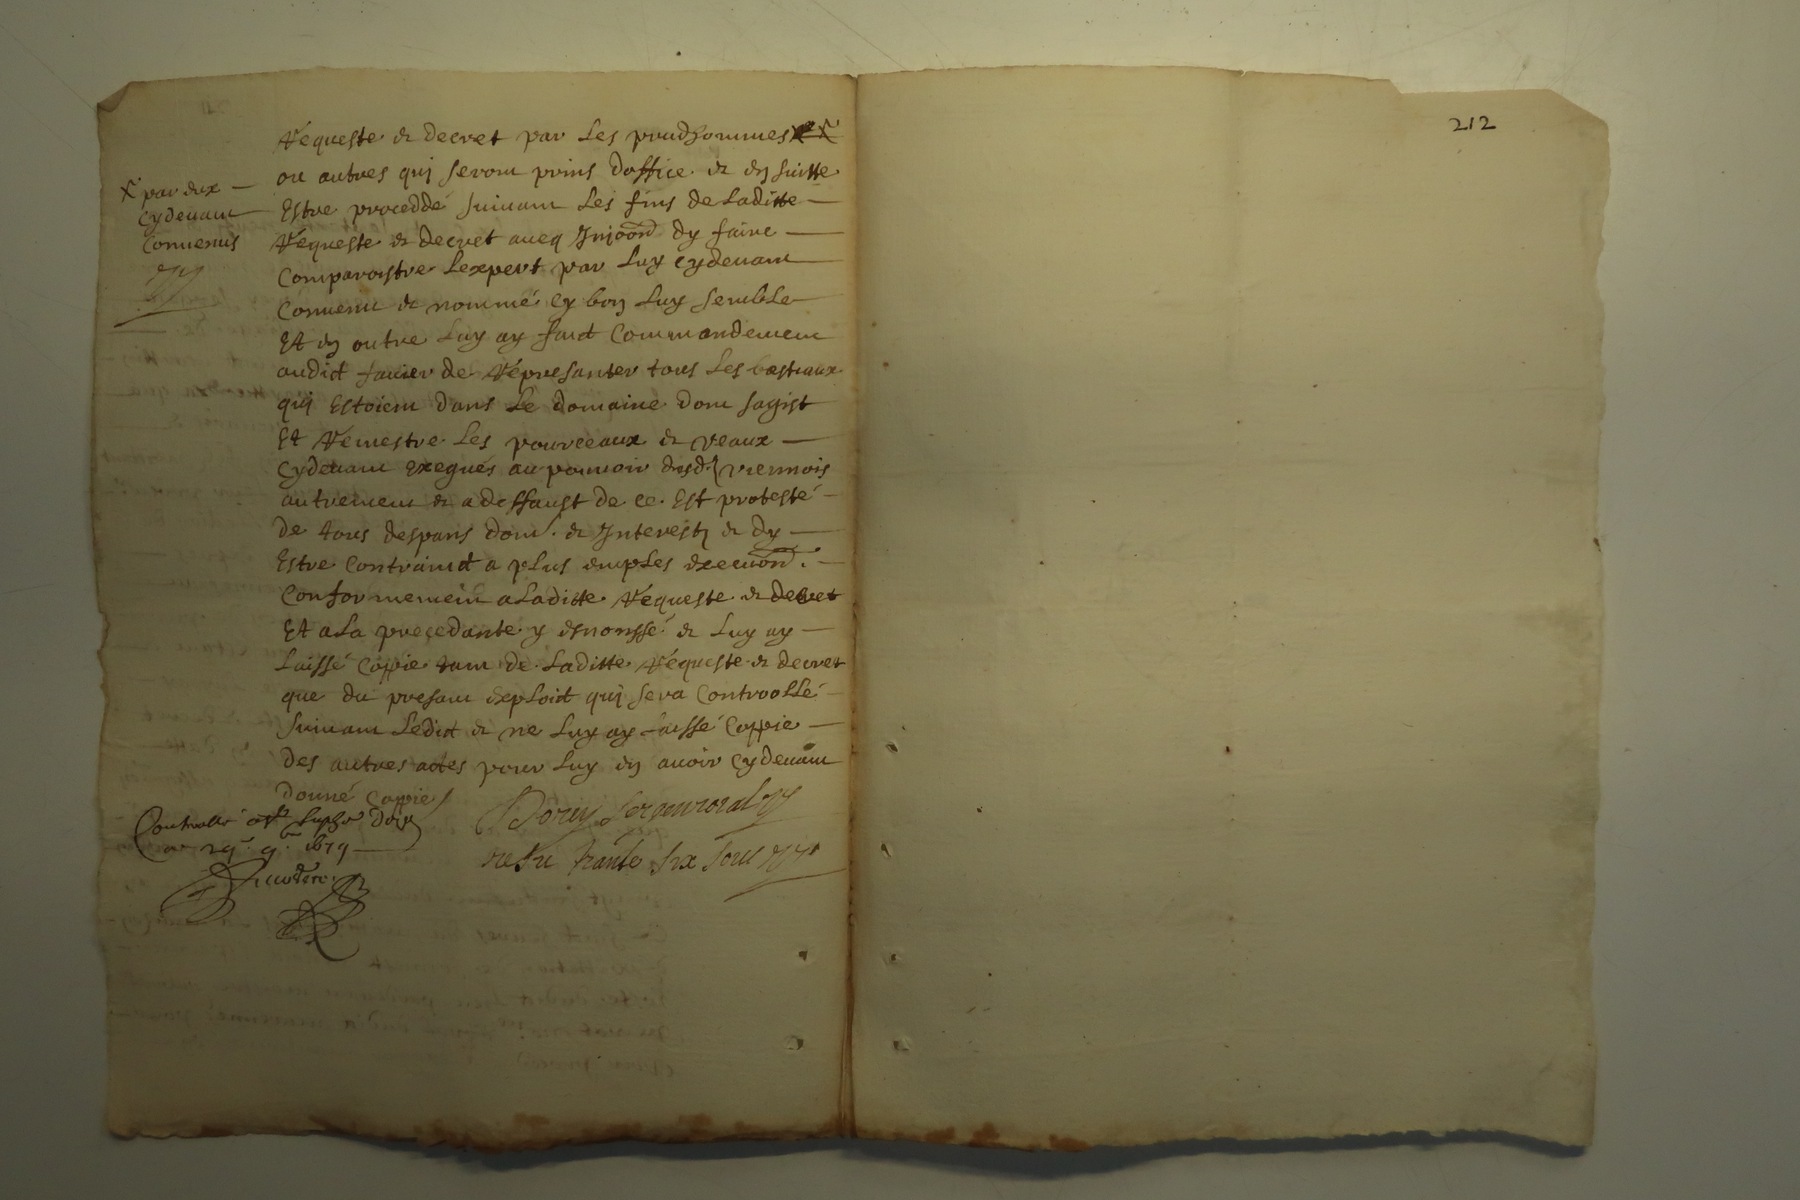 Requeste & decret par Les prudhommes X
ou autres quj seront prins doffice & en suitte
X par eux
cydevant
convenus
Estre proceddé suivant Les fins de Laditte
Requeste & decret avec Injoon dy faire
Comparoistre Lexpert par Luy cydevant
Convenu & nommé sy bon Luy semble
Et en outre Luy ay faict Commandement
audict favier de Répresanter tous Les bestiaux
quj Estoient dans Le domaine dont sagist
Et Remestre Les pourceaux & veaux
Cydevant exegués au pouvoir
autrement & a deffaust de ce Est protesté
de tous despans dom. & Interestz & dy
Estre Contrainct a plus amples
Conformement a Laditte Requeste & decret
Et a La precedante y enonssé & Luy ay
Laissé Coppie tant de Laditte Requeste & decret
que du presant exploict quj sera Controollé
suivant Ledict & ne Luy ay Laissé Coppie
des autres actes pour Luy en avoir cydevant
donné Coppie
Sergent royal
trante six sous
Controllé
1679
212